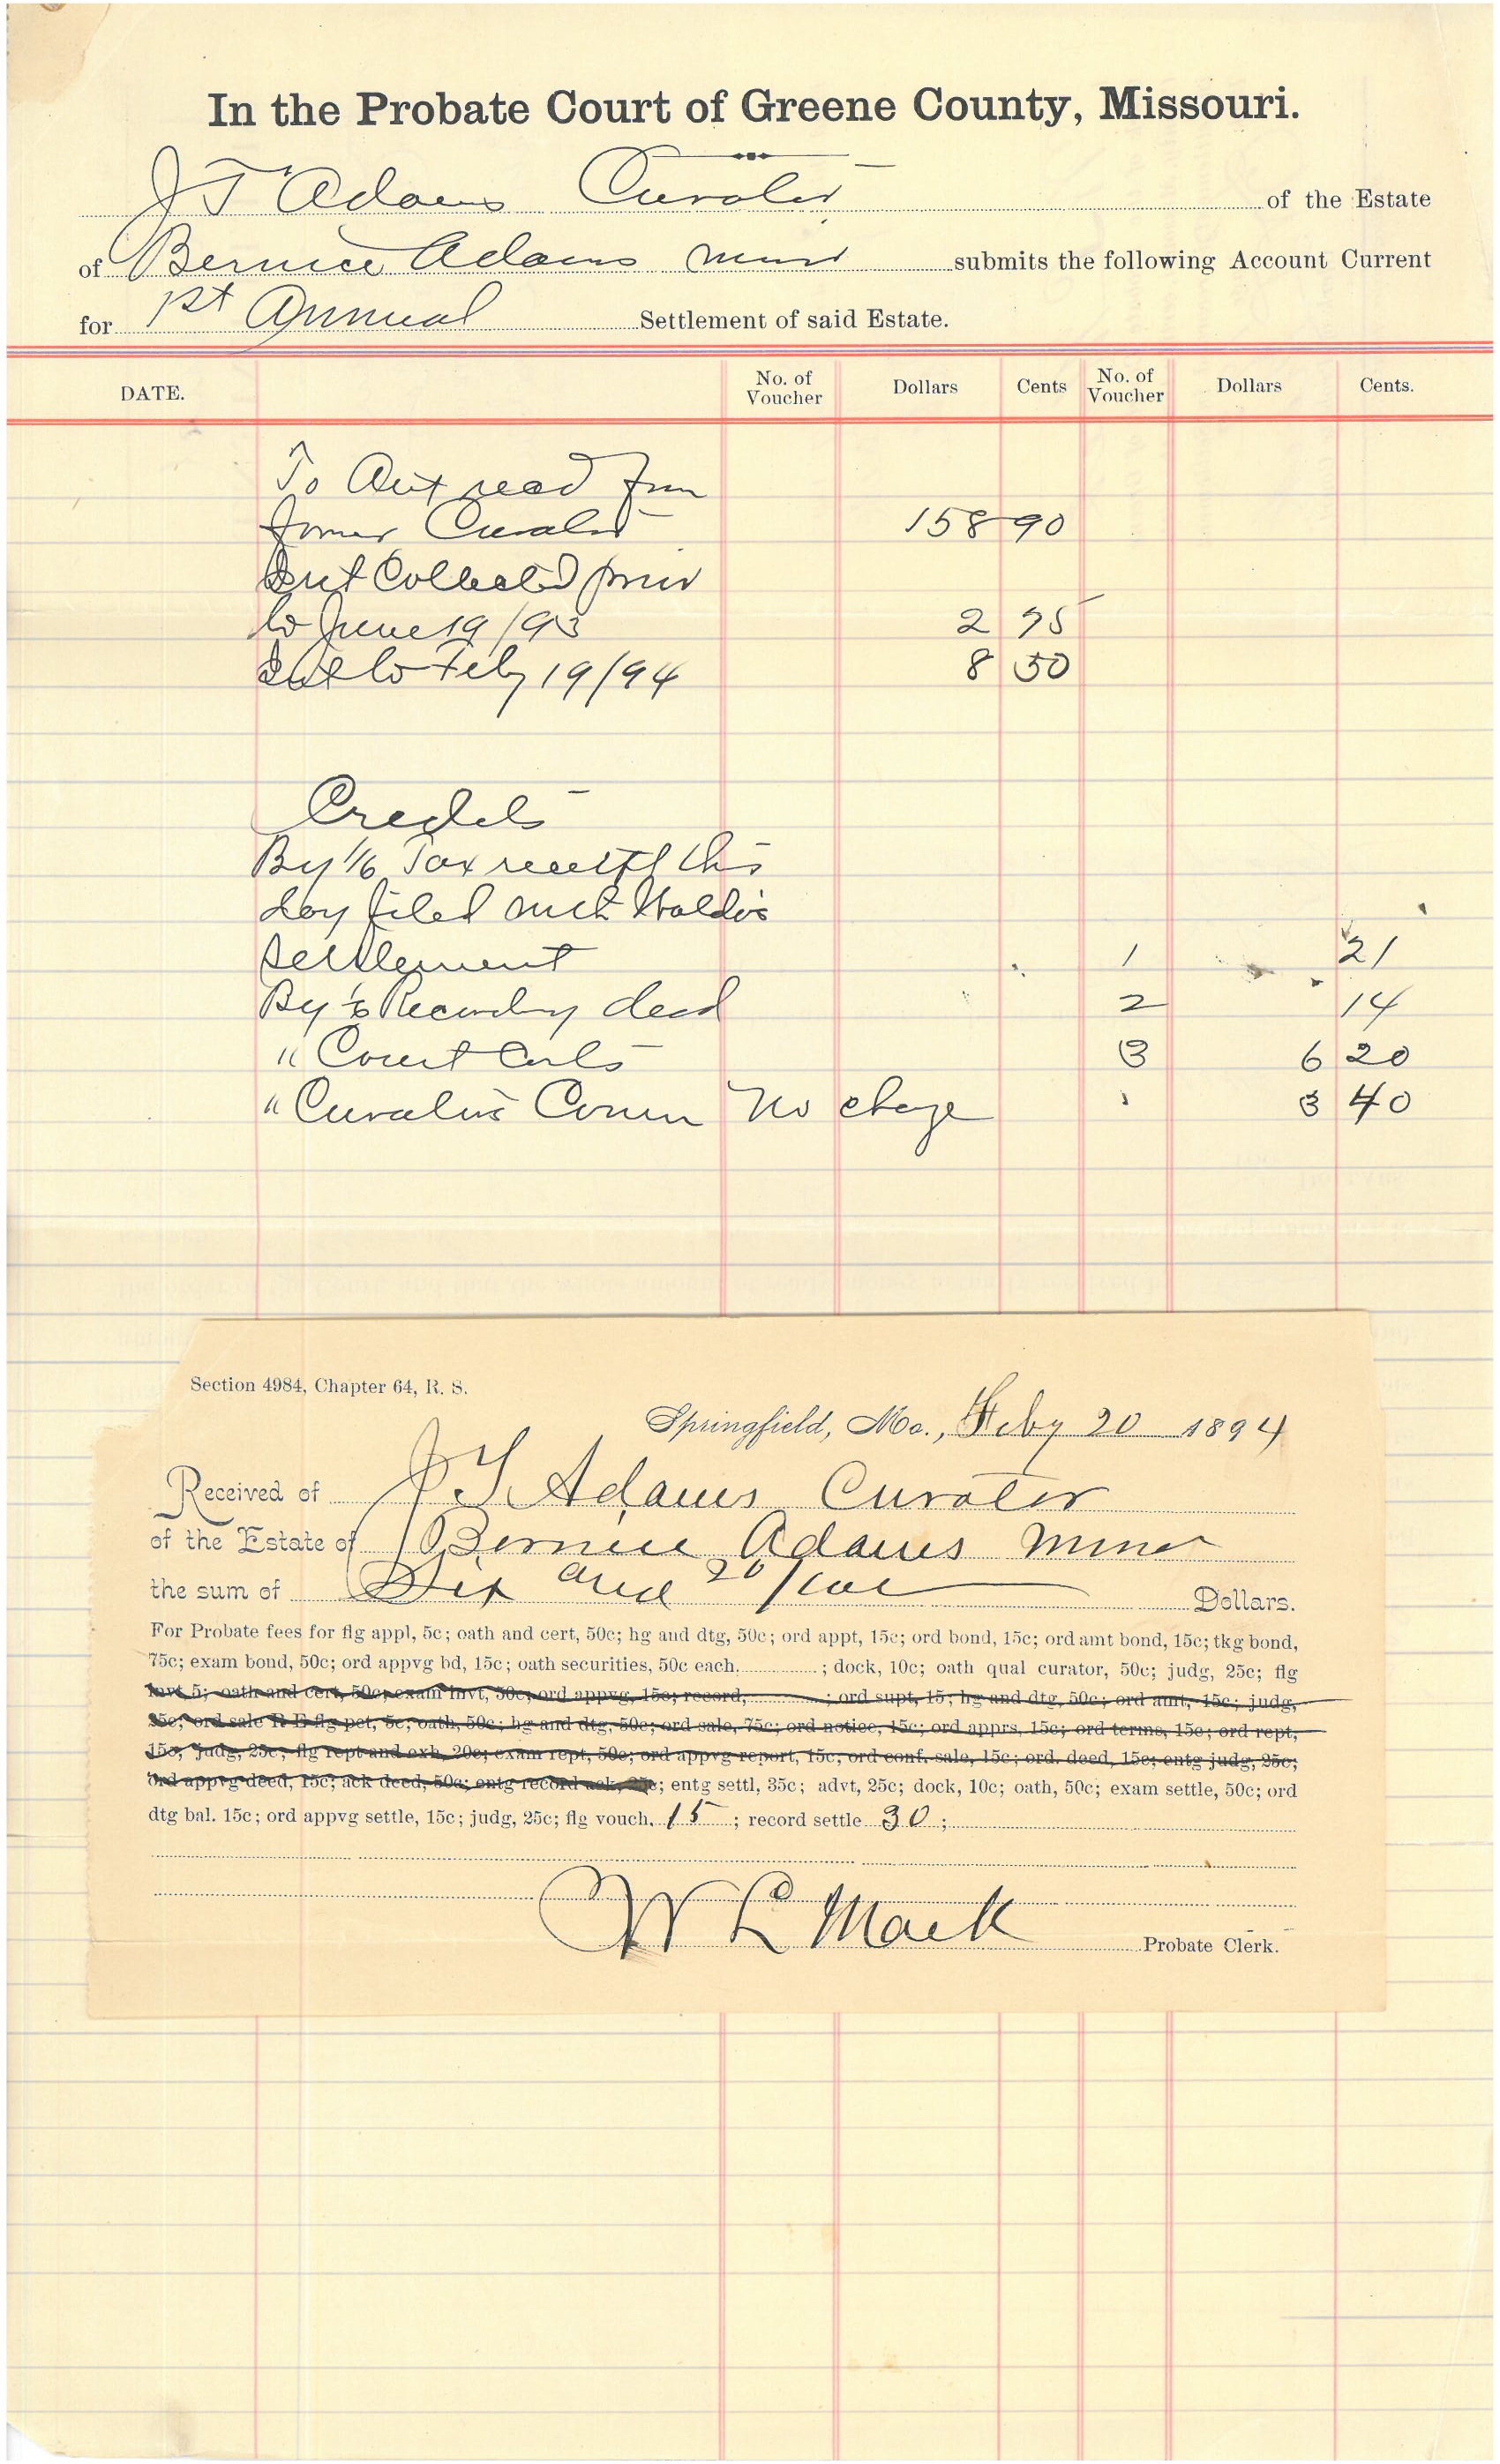 In the Probate Court of Greene County, Missouri.
J T Adams Curator of the Estate
of Bernice Adams minor submits the following Account Current
for 1st Annual Settlement of said Estate.
DATE. No. of Voucher Dollars Cents No. of Voucher Dollars Cents.
To Amt recd from
former Curator 158 90
Int Collected prior
to June 19/93 2 75
Int to Feby 19/94 8 50
Credits
By 1/6 Tax receipt this
day filed with
Settlement 1 21
By 1/6 Recording deed 2 14
" Court Costs 3 6 20
" Curators Comm No charge 3 40
Section 4984, Chapter 64, R. S.
Springfield, Mo., Feby 20 1894
Received of J T Adams Curator
of the Estate of Bernice Adams Minor
the sum of Six and 20/100 Dollars.
For Probate fees for flg appl, 5c; oath and cert, 50c; hg and dtg, 50c; ord appt, 15c; ord bond, 15c; ord amt bond, 15c; tkg bond,
75c; exam bond, 50c; ord appvg bd, 15c; oath securities, 50c each, ; dock, 10c; oath qual curator, 50c; judg, 25c; flg
invt 5; oath and cert, 50c; exam invt, 50c; ord appvg, 15c; record, ; ord supt, 15; hg and dtg, 50c; ord amt, 15c; judg,
25c; ord sale R E flg pet, 5c; oath, 50c; hg and dtg, 50c; ord sale, 75c; ord notice, 15c; ord apprs, 15c; ord terms, 15c; ord rept,
15c; judg, 25c; flg rept and exh, 20c; exam rept, 50c; ord appvg report, 15c; ord conf. sale, 15c; ord. deed, 15c; entg judg, 25c;
ord appvg deed, 15c; ack deed, 50c; entg record ack, 25c; entg settl, 35c; advt, 25c; dock, 10c; oath, 50c; exam settle, 50c; ord
dtg bal. 15c; ord appvg settle, 15c; judg, 25c; flg vouch. 15 ; record settle 30 ;
W L Mack Probate Clerk.